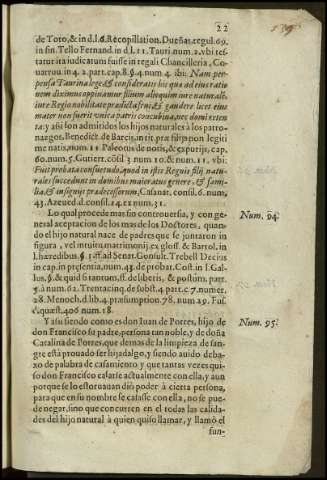 22
de Toro, & in d.l.6. Recopillation. Dueñas, regul. 69.
in fin. Tello Fernand. in d.l. 11. Tauri. num. 2. vbi tes-
tatur ita iudicatum fuisse in regali Chancilleria, Co-
uarruu. in 4. 2. part. cap. 8. §. 4. num 4. ibi. Nam per-
pensa Taurina lege & consideratis his qua ad eius ratio
nem diximus opinamur filium aliquim iure naturale,
iure Regio nobilitate prædicta frui, & gaudere licet eius
mater non fuerit vnica patris concubina, nec domi exten
ta: y assi son admitidos los hijos naturales à los patro-
nazgos. Benedict. de Barcis, in tit. præ filijs non legiti
me natis, num. 11. Paleotus de notis, & expurijs, cap.
60. num. 5. Gutierr. cõsil. 3. num 10. & num. 11. vbi:
Fuit probata consuetudo, quod in istis Regnis filij natu-
rales succedunt in domibus maioratus genere, & fami-
lia, & insignijs prædecessorum, Casanat. consil. 6. num.
43. Azeued. d. consil. 14. ex num. 31.
Lo qual procede mas sin controuersia, y con ge-
neral aceptacion de los mas de los Doctores, quan-
do el hijo natural nace de padres que se juntaron in
figura, vel intuitu matrimonij, ex gloss. & Bartol. in
l. hæredibus. §. 1. ff. ad Senat. Consult. Trebell. Decius
in cap. in presentia, num. 43. de probat. Cost. in l. Gal-
lus, §. & quid si tantum, ff. de liberis, & postum. part.
3. à num. 62. Trentacinq. de subst. 4. part. c. 7. numer.
28. Menoch. d. lib. 4. præsumption. 78. num 29. Fus.
d. quæst. 406 num. 18.
Num. 94.
Y assi siendo como es don Iuan de Porres, hijo de
don Francisco su padre, persona tan noble, y de doña
Catalina de Porres, que demas de la limpieza de san-
gre està prouado ser hijadalgo, y siendo auido deba-
xo de palabra de casamiento y que tantas vezes qui-
so don Francisco casarse actualmente con ella, y aun
porque se lo estoruauan diò poder à cierta persona,
para que en su nombre se casasse con ella, no se pue-
de negar, sino que concurren en el todas las calida-
des del hijo natural à quien quiso llamar, y llamò el
fun-
Num. 95.